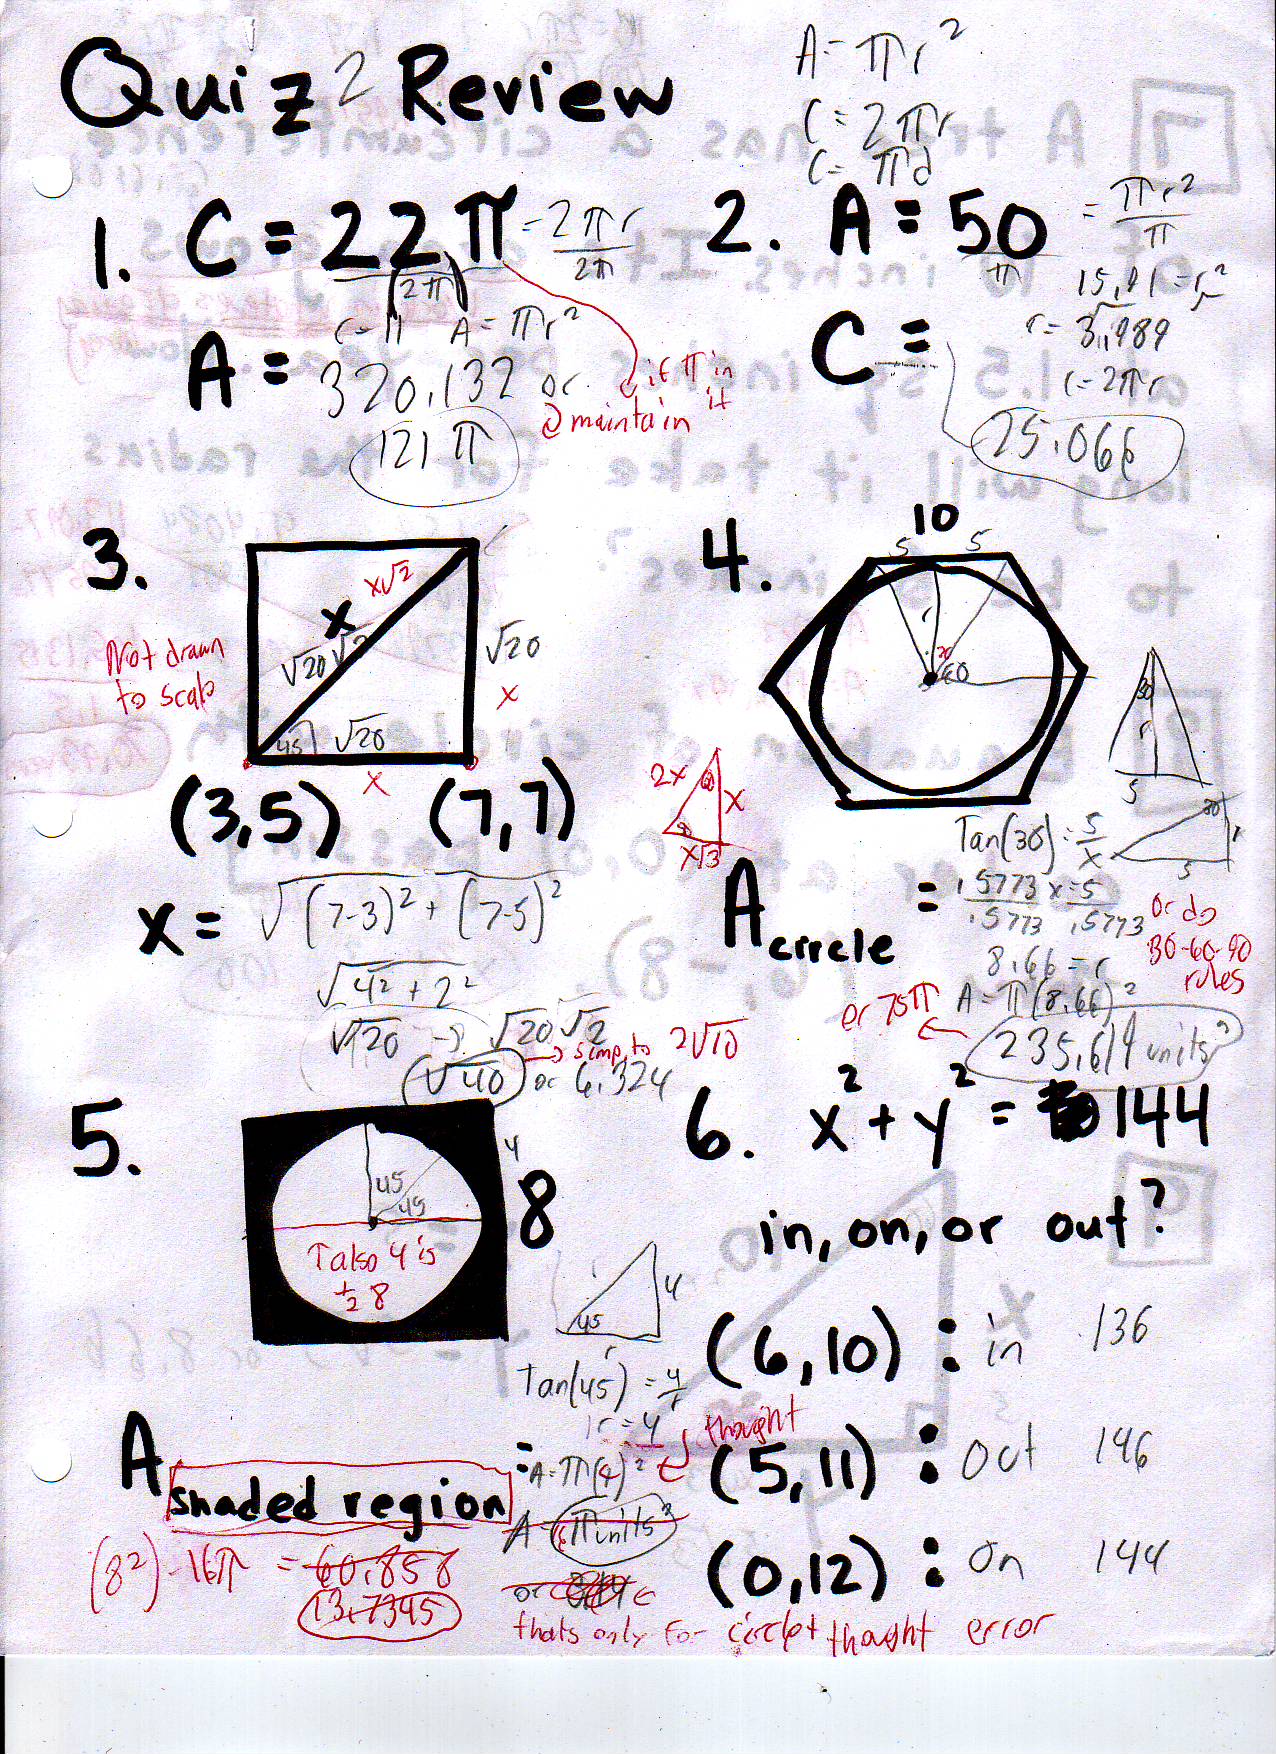 Quiz 2 Review
A = πr²
C = 2πr
C = πd
1. C = 22π = 2πr
2π 2π
r = 11 A = πr²
A = 320.132 or
121π
if π in it
maintain
2. A = 50 = πr²
π π
15.91 = r²
r = 3.989
C = 2πr
C =
25.066
3.
Not drawn
to scale
x x√2
√20 √2
√20
x
45 √20
x
(3,5) (7,7)
x = √(7-3)² + (7-5)²
√4² + 2²
√20 → √20 √2
√40 → simp. to 2√10
or 6.324
4.
10
5 5
r
30
60
30
r
5
30
r
5
2x
60
x
30
x√3
Tan(30) = 5/x
.5773 x = 5
.5773 .5773
or do
30-60-90
rules
8.66 = r
A circle =
A = π(8.66)²
or 75π
235.619 units²
5.
45
45
4
8
I also 4 is
½ 8
4
45
r
Tan(45) = 4/r
r = 4
thought
A shaded region =
A = π(4)²
π units²
(8²) - 16π = 60.858
13.7345
or
thats only for circle thought error
6. x² + y² = 144
in, on, or out?
(6,10) : in 136
(5,11) : out 146
(0,12) : on 144